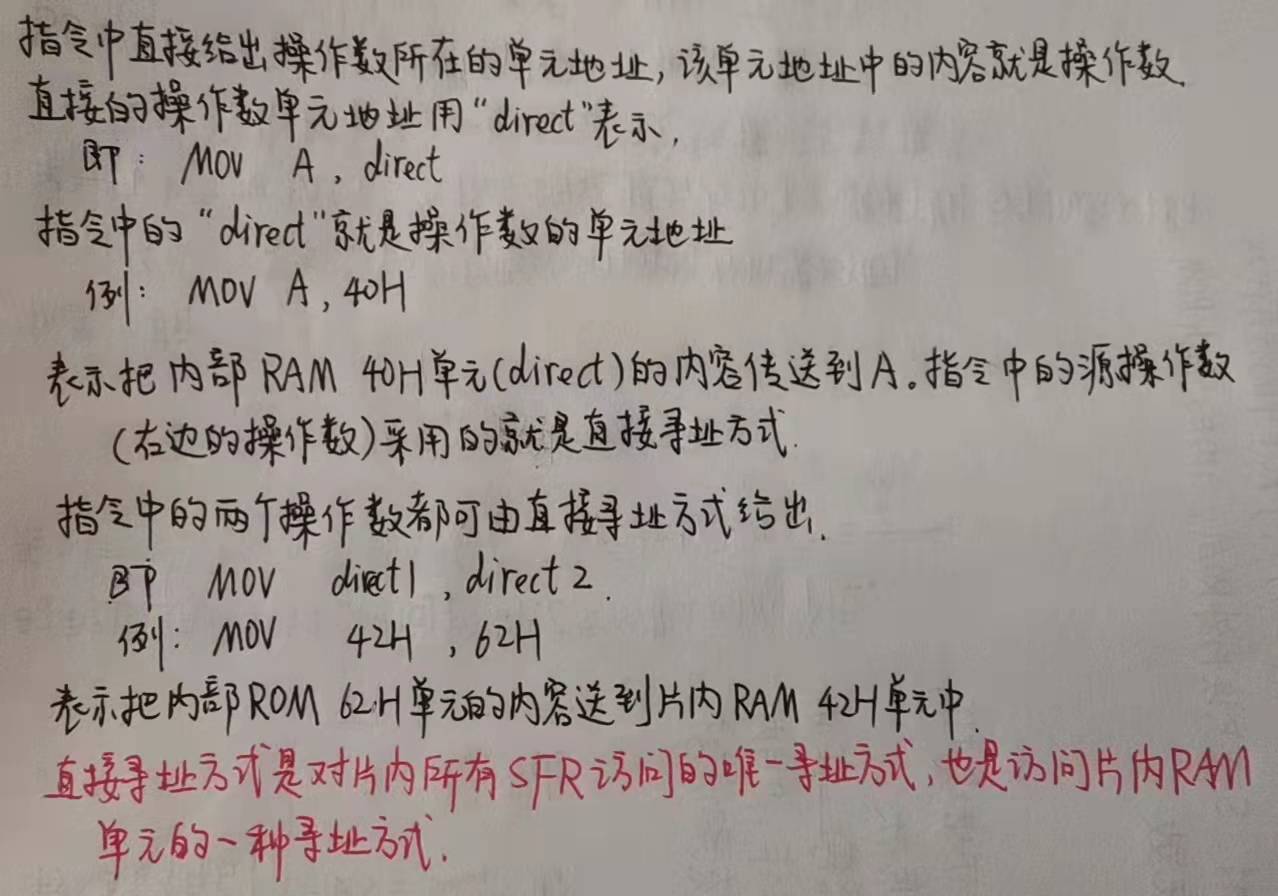 指令中直接给出操作数所在的单元地址,该单元地址中的内容就是操作数.
直接的操作数单元地址用“direct”表示,
即: MOV A, direct
指令中的“direct”就是操作数的单元地址
例: MOV A, 40H
表示把内部RAM 40H单元(direct)的内容传送到A。指令中的源操作数
(右边的操作数)采用的就是直接寻址方式.
指令中的两个操作数都可由直接寻址方式给出.
即 MOV direct1, direct2.
例: MOV 42H, 62H
表示把内部ROM 62H单元的内容送到片内RAM 42H单元中.
直接寻址方式是对片内所有SFR访问的唯一寻址方式,也是访问片内RAM
单元的一种寻址方式.